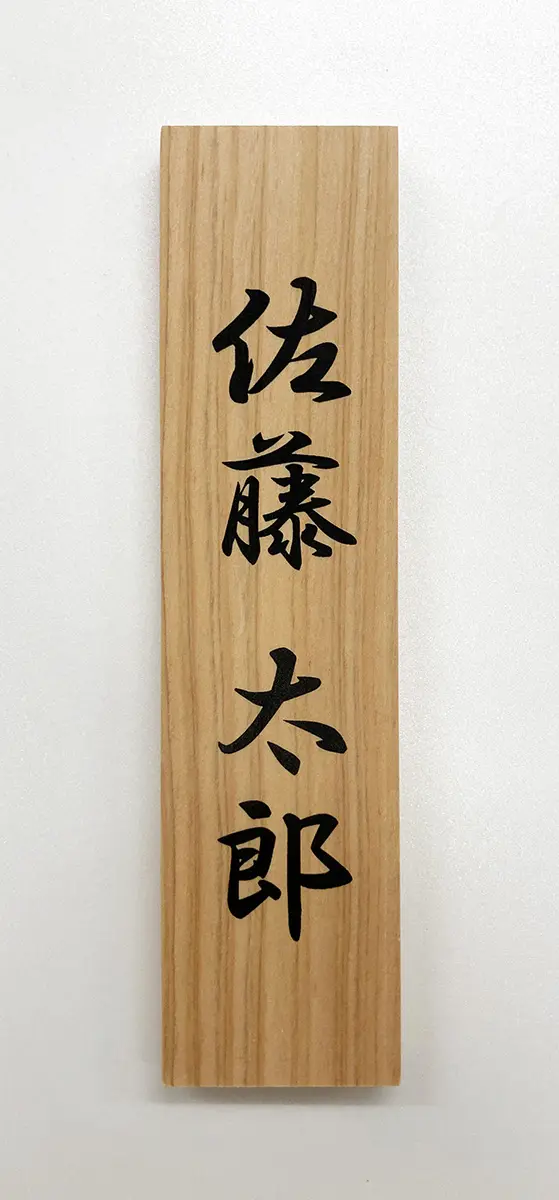 佐藤 太郎